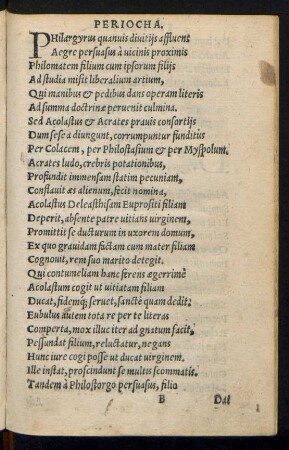 PERIOCHA.
PHilargyrus quanuis diuitijs affluent
Aegre persuasus à vicinis proximis
Philomatem filium cum ipsorum filijs
Ad studia misit liberalium artium,
Qui manibus & pedibus dans operam literis
Ad summa doctrinæ peruenit culmina.
Sed Acolastus & Acrates prauis consortijs
Dum sese a diungunt, corrumpuntur funditius
Per Colacem, per Philostasium & per Myspolum.
Acrates ludo, crebris potationibus,
Profundit immensam statim pecuniam,
Conflauit æs alienum, fecit nomina,
Acolastus Deleasthisam Euprositi filiam
Deperit, absente patre vitians virginem,
Promittit se ducturum in vxorem domum,
Ex quo grauidam factam cum mater filiam
Cognouit, rem suo marito detegit.
Qui contumeliam hanc ferens ægerrimè
Acolastum cogit ut vitiatam filiam
Ducat, fidemq; seruet, sanctè quam dedit.
Eubulus autem tota re per te literas
Comperta, mox illuc iter ad gnatum facit,
Pessundat filium, reluctatur, negans
Hunc iure cogi posse ut ducat virginem.
Ille instat, proscindunt se multis scommatis.
Tandem à Philostorgo persuasus, filio
B Dat
1